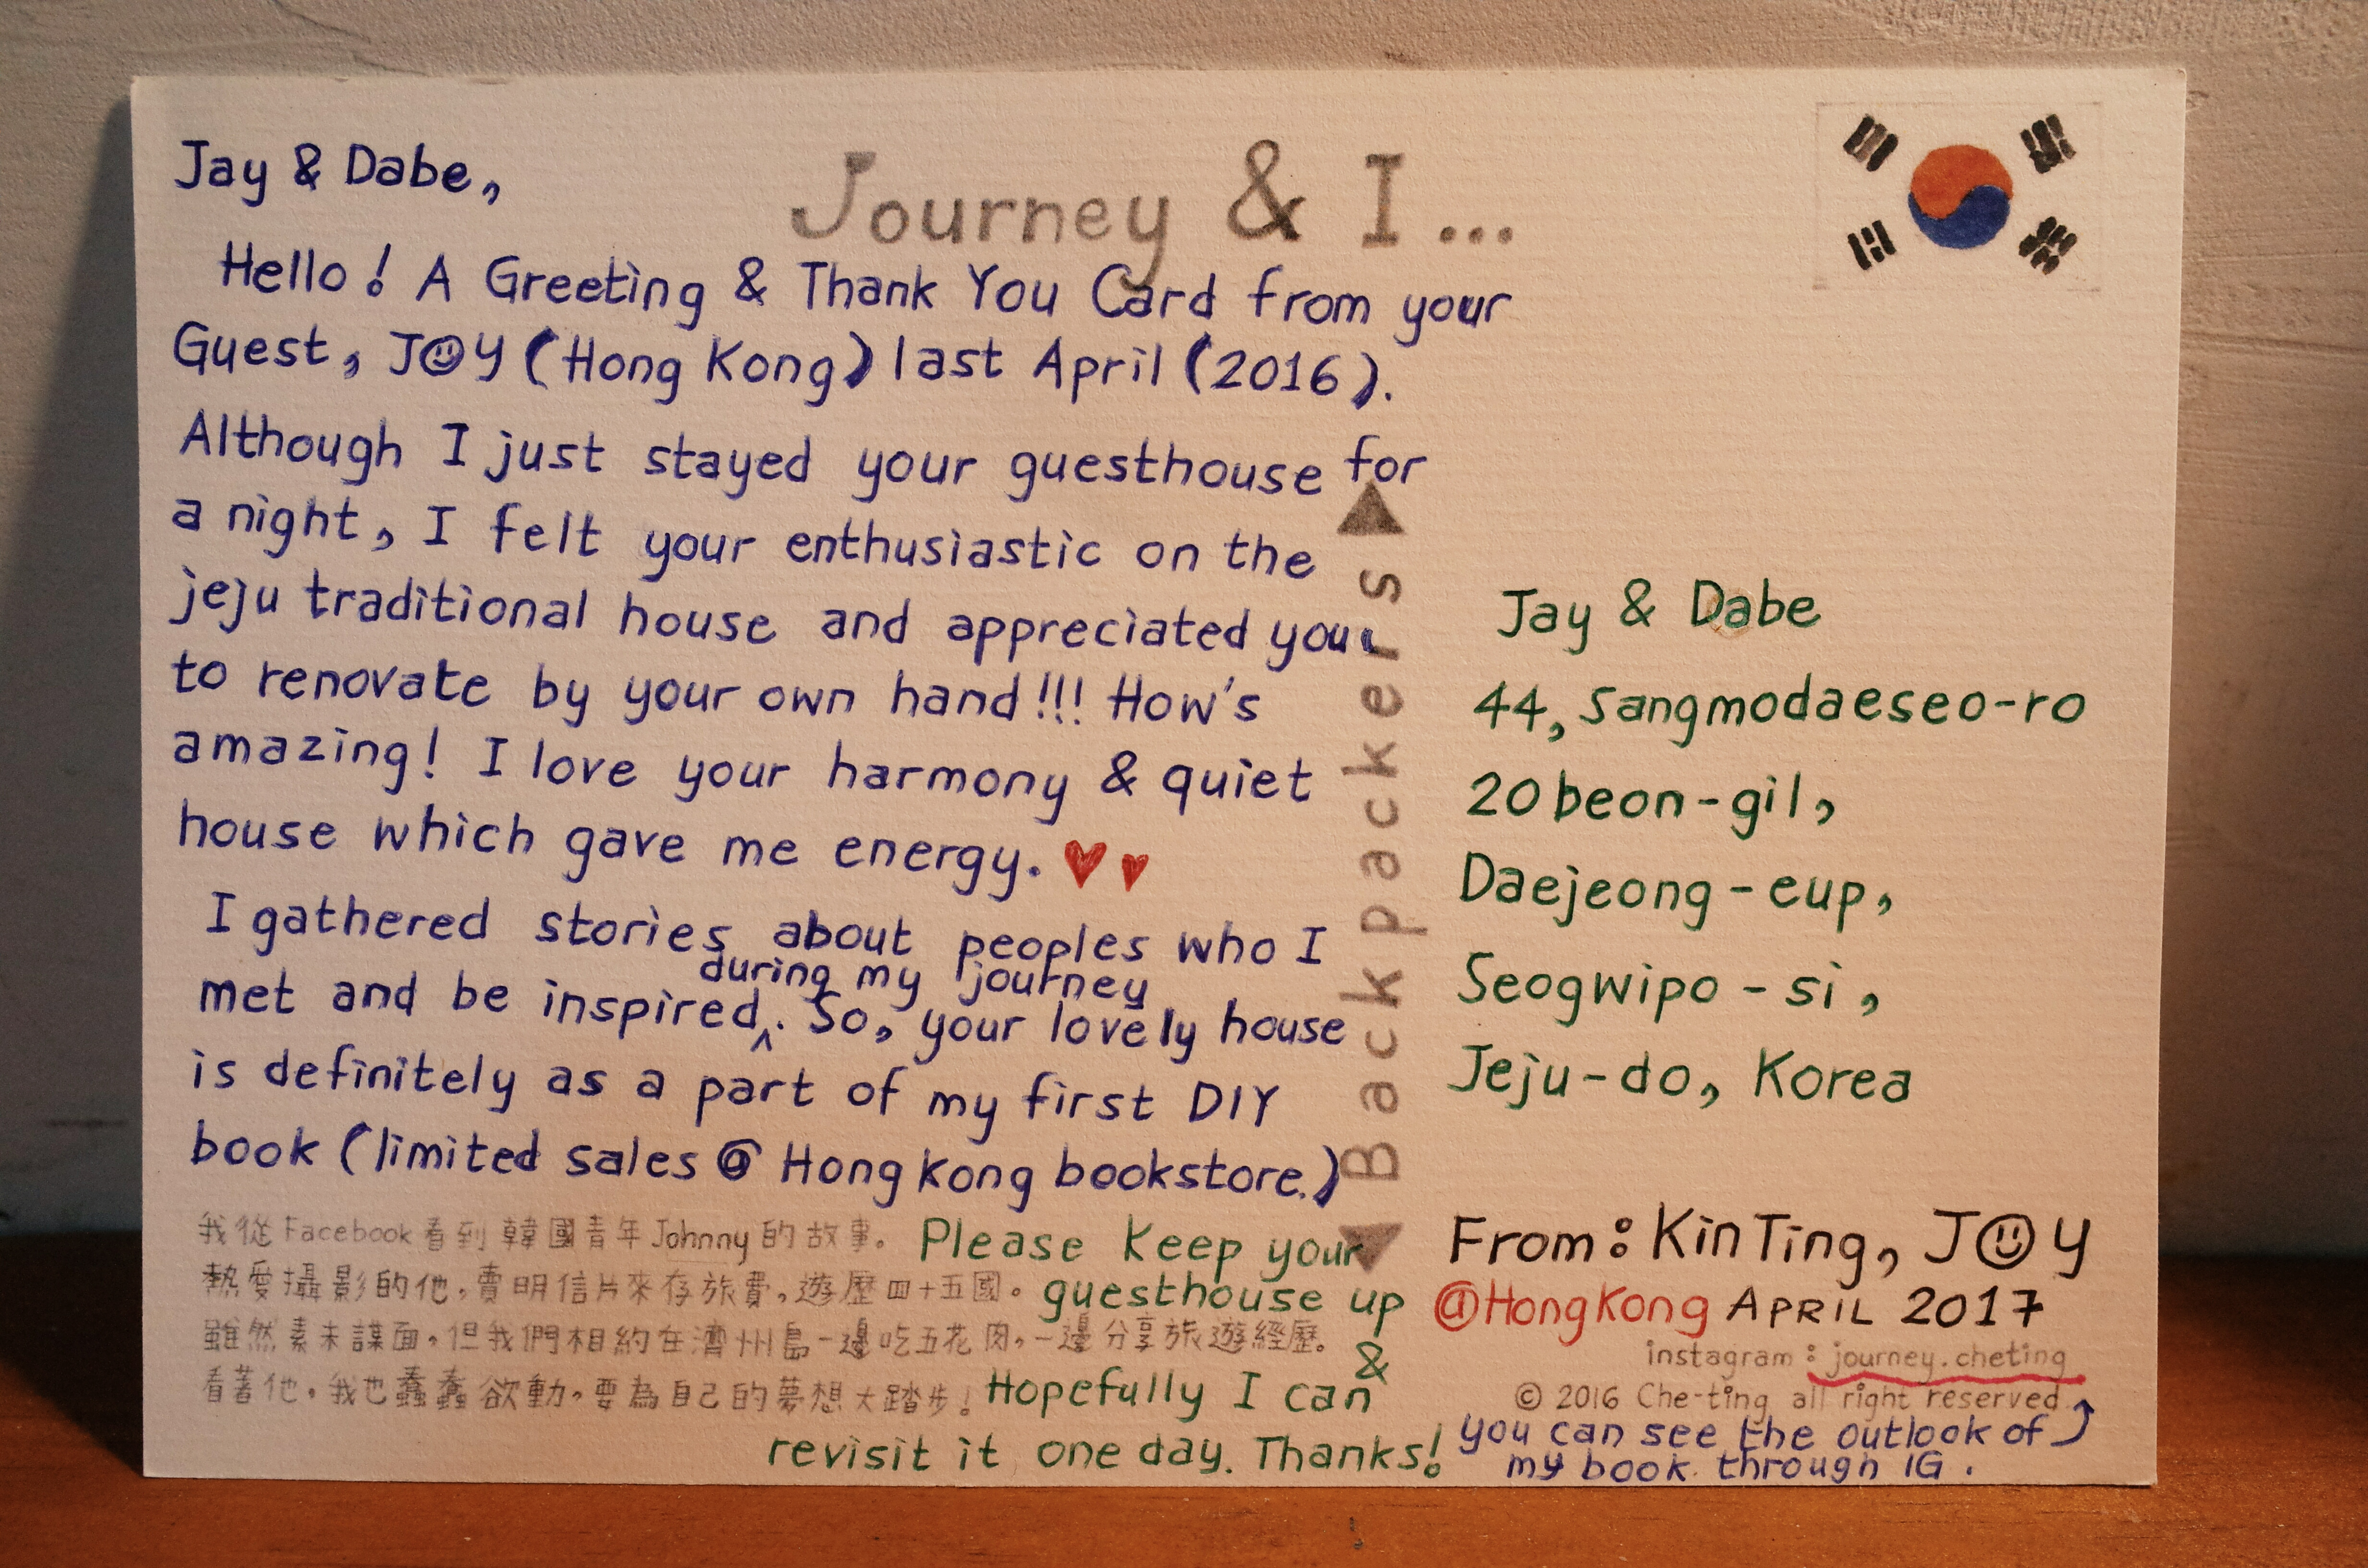 Journey & I...
Jay & Dabe,
Hello! A Greeting & Thank You Card from your
Guest, JOY (Hong Kong) last April (2016).
Although I just stayed your guesthouse for
a night, I felt your enthusiastic on the
jeju traditional house and appreciated you
to renovate by your own hand!!! How's
amazing! I love your harmony & quiet
house which gave me energy.
I gathered stories about peoples who I
during my journey
met and be inspired. So, your lovely house
is definitely as a part of my first DIY
book (limited sales @ Hong Kong bookstore.)
我從Facebook看到韓國青年Johnny的故事。
熱愛攝影的他，賣明信片來存旅費，遊歷四十五國。
雖然素未謀面，但我們相約在濟州島一邊吃五花肉，一邊分享旅遊經歷。
看著他，我也蠢蠢欲動，要為自己的夢想大踏步！
Please keep your
guesthouse up
&
Hopefully I can
revisit it one day. Thanks!
Backpackers
Jay & Dabe
44, Sangmodaeseo-ro
20beon-gil,
Daejeong-eup,
Seogwipo-si,
Jeju-do, Korea
From: Kin Ting, JOY
@Hong Kong APRIL 2017
instagram: journey.cheting
© 2016 Che-ting all right reserved.
you can see the outlook of
my book through IG.